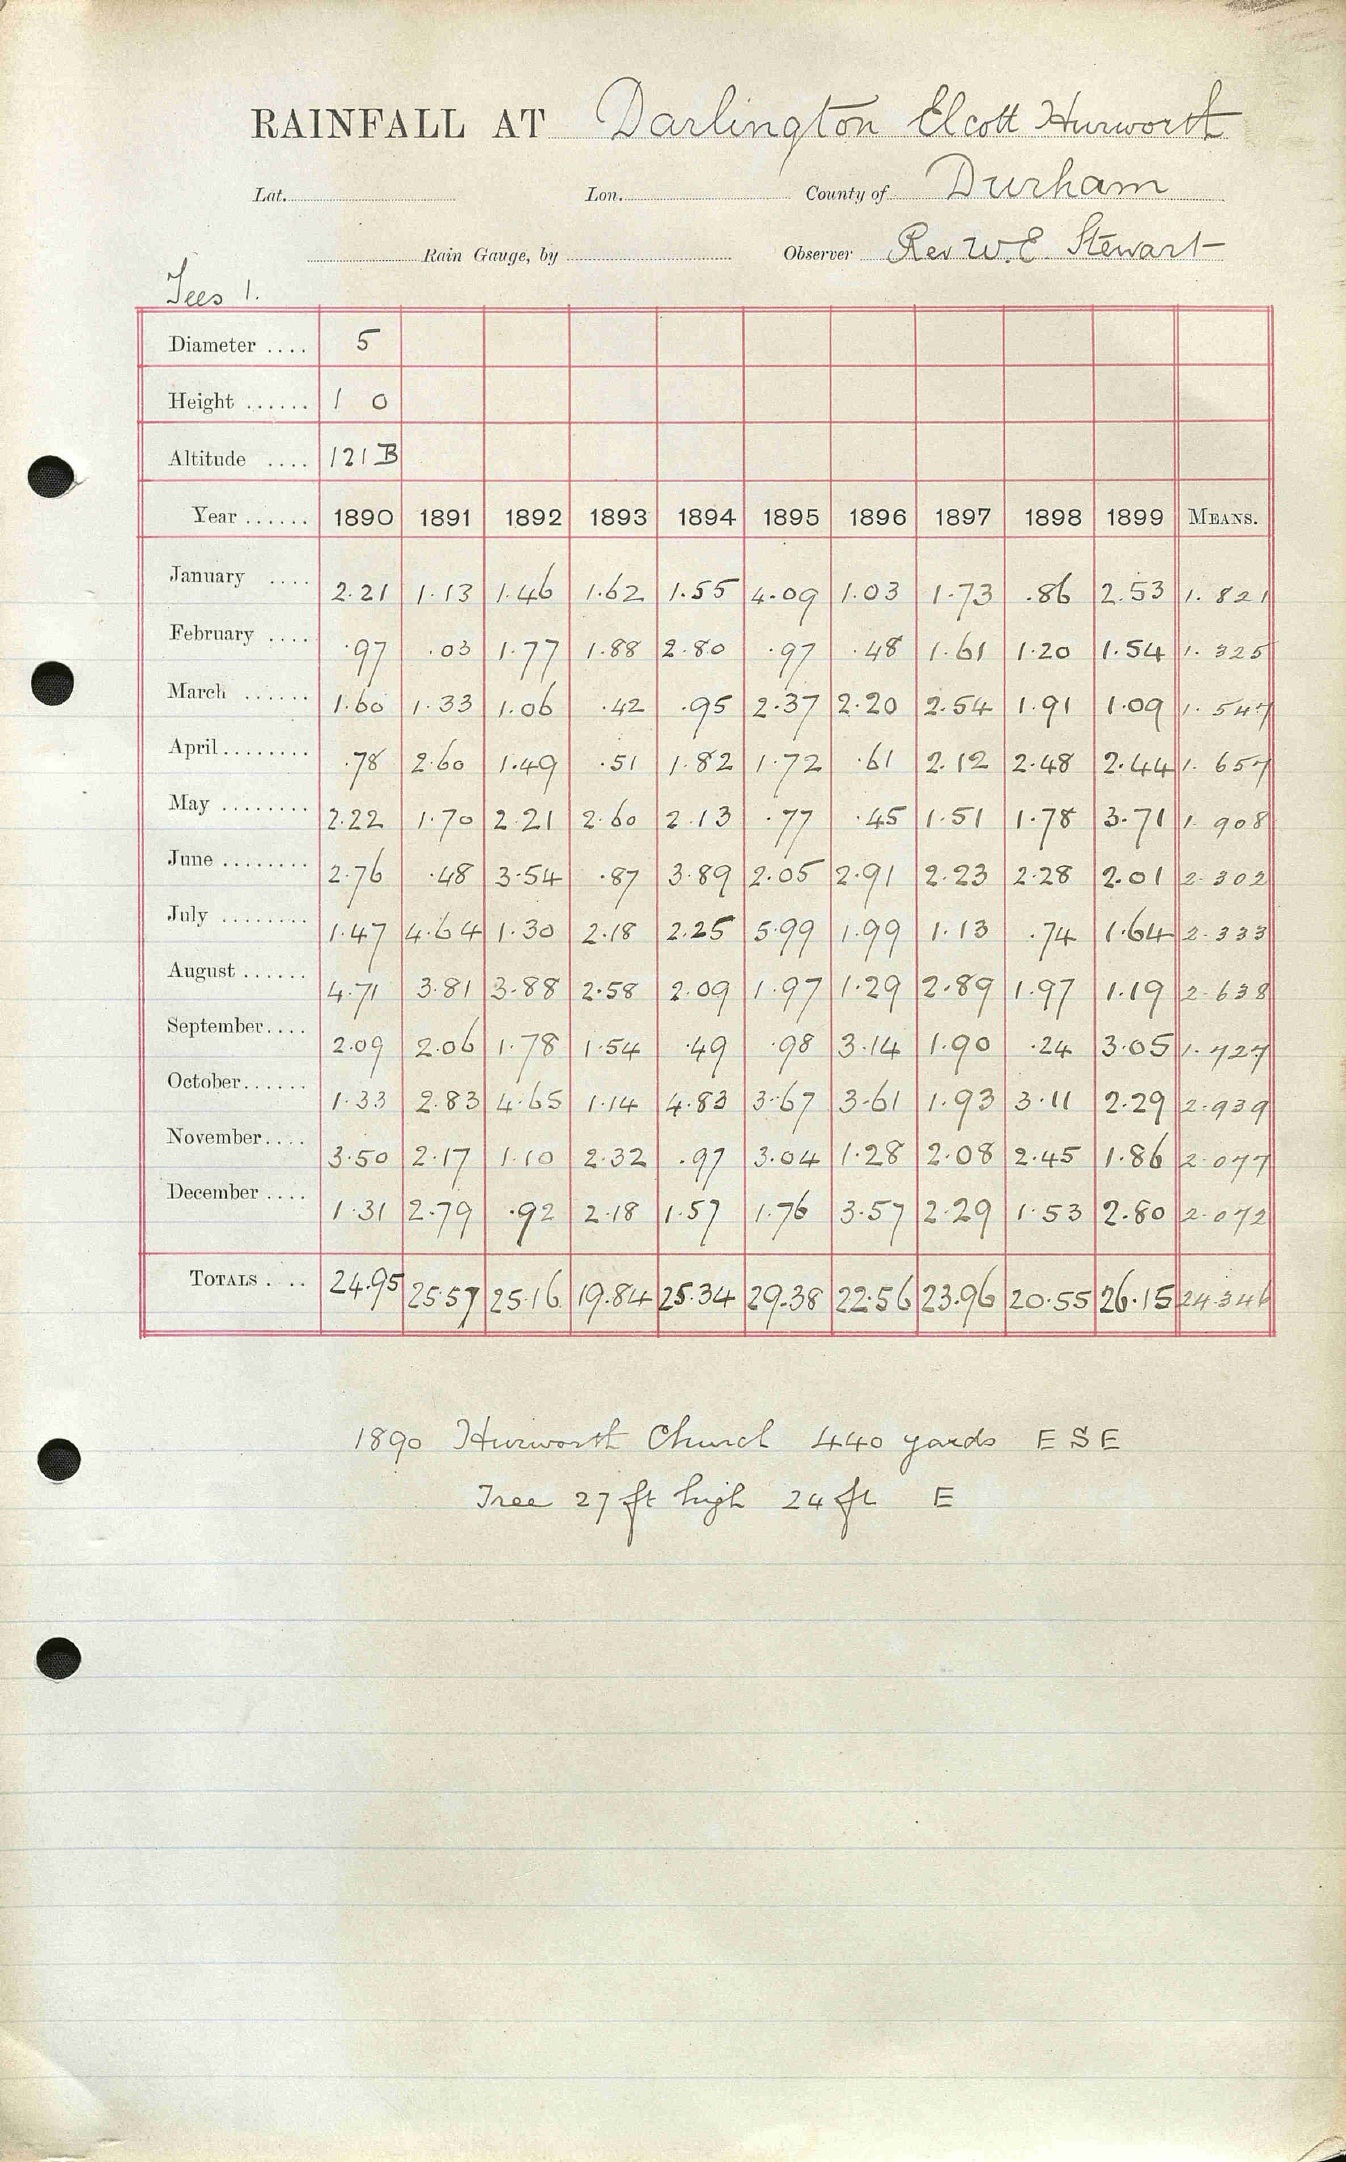 RAINFALL AT Darlington Elcott Hurworth
Lat. Lon. County of Durham
Rain Gauge, by Observer Rev W.E. Stewart
Tees 1.
Diameter .... 5
Height ...... 1 0
Altitude .... 121 B
Year ...... 1890 1891 1892 1893 1894 1895 1896 1897 1898 1899 MEANS.
January .... 2.21 1.13 1.46 1.62 1.55 4.09 1.03 1.73 .86 2.53 1.821
February .... .97 .03 1.77 1.88 2.80 .97 .48 1.61 1.20 1.54 1.325
March ...... 1.60 1.33 1.06 .42 .95 2.37 2.20 2.54 1.91 1.09 1.547
April ........ .78 2.60 1.49 .51 1.82 1.72 .61 2.12 2.48 2.44 1.657
May ........ 2.22 1.70 2.21 2.60 2.13 .77 .45 1.51 1.78 3.71 1.908
June ........ 2.76 .48 3.54 .87 3.89 2.05 2.91 2.23 2.28 2.01 2.302
July ........ 1.47 4.64 1.30 2.18 2.25 5.99 1.99 1.13 .74 1.64 2.333
August ...... 4.71 3.81 3.88 2.58 2.09 1.97 1.29 2.89 1.97 1.19 2.638
September .... 2.09 2.06 1.78 1.54 .49 .98 3.14 1.90 .24 3.05 1.727
October ...... 1.33 2.83 4.65 1.14 4.83 3.67 3.61 1.93 3.11 2.29 2.939
November .... 3.50 2.17 1.10 2.32 .97 3.04 1.28 2.08 2.45 1.86 2.077
December .... 1.31 2.79 .92 2.18 1.57 1.76 3.57 2.29 1.53 2.80 2.072
TOTALS .... 24.95 25.57 25.16 19.84 25.34 29.38 22.56 23.96 20.55 26.15 24.346
1890 Hurworth Church 440 yards E S E
Tree 27 ft high 24 ft E